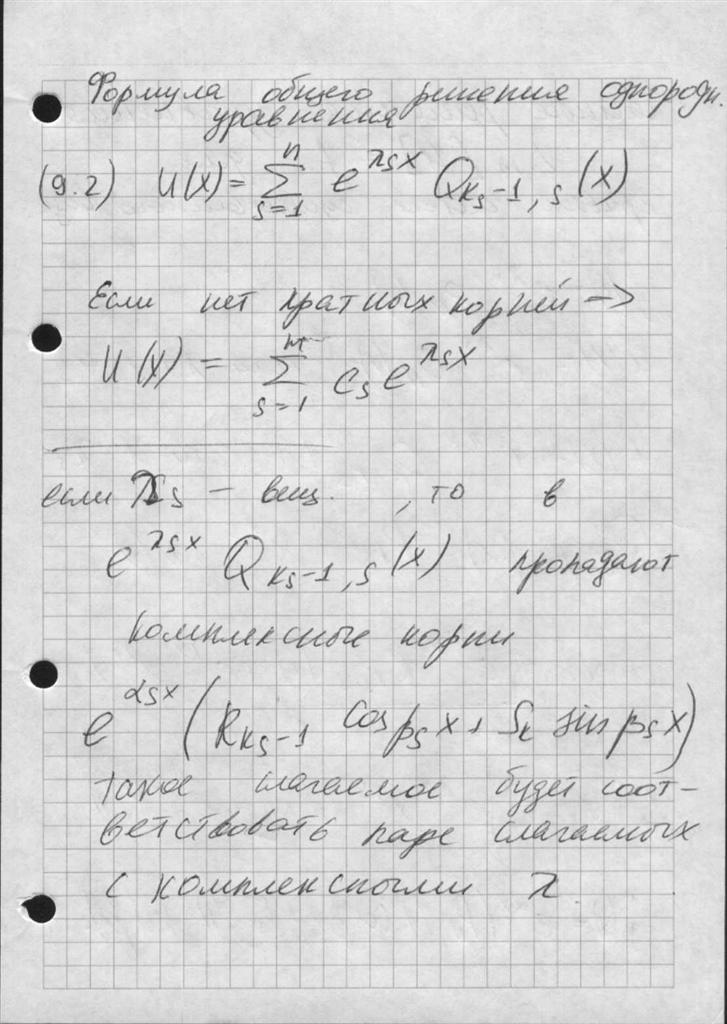 Формула общего решения однородн.
уравнения
(9.2) U(x) = \sum_{s=1}^{n} e^{λ_s x} Q_{k_s-1, s}(x)
Если нет кратных корней ->
U(x) = \sum_{s=1}^{m} c_s e^{λ_s x}
если λ_s - вещ. , то в
e^{λ_s x} Q_{k_s-1, s}(x) пропадают
комплексные корни
e^{α_s x} (R_{k_s-1} cos β_s x + S_k sin β_s x)
такое слагаемое будет соот-
ветствовать паре слагаемых
с комплексными λ